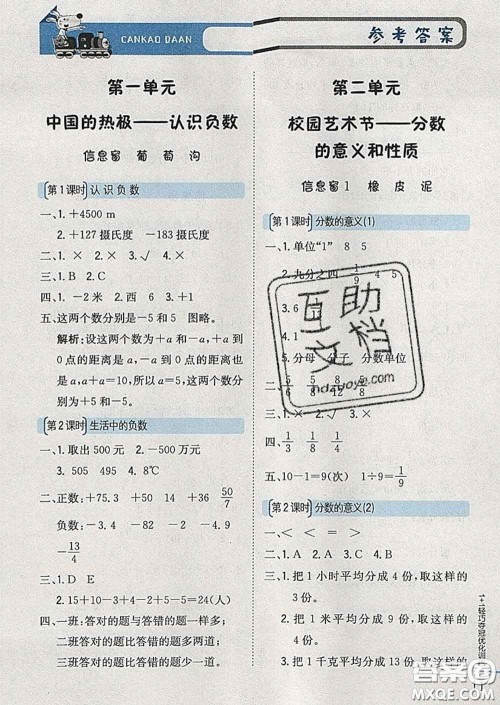 CANKAO DAAN
参考答案
第一单元
中国的热极——认识负数
信息窗 葡萄沟
第1课时 认识负数
一、1. +4500 m
2. +127 摄氏度 -183 摄氏度
二、1. × 2. × 3. √ 4. ×
三、1. B 2. C
四、1. -2米 2. 西 6 3. +1
五、这两个数分别是-5和5 图略。
解析:设这两个数为+a和-a,+a到
0点的距离是a,-a到0点的距离也
是a,a+a=10,所以a=5,则这两个
数分别是+5和-5。
第2课时 生活中的负数
一、1. 取出500元 2. -500万元
3. 505 495 4. 8℃
二、正数:+75.3 +44 +36 50/7
负数:-3 -22 -12.4
-13/4
三、1. D E
2. 15+10-3+4-2-5+5=24(人)
四、一班:答对的题与答错的题一样多;
二班答对的题比答错的题多两道;
三班答对的题比答错的题少一道。
第二单元
校园艺术节——分数
的意义和性质
信息窗1 橡皮泥
第1课时 分数的意义(1)
一、1. 单位“1” 8 5
2. 九分之四 1/9 4 5
3. 6
4. 1
5. 分母 分子 分数单位
二、
三、
四、1/3 1/8 1/4
五、10-1=9(次) 1÷9=1/9
第2课时 分数的意义(2)
一、< < = >
二、1. A 2. A 3. A
三、1. 把1小时平均分成4份,取这样的
3份。
2. 把1米平均分成9份,取这样的
4份。
3. 把1千克平均分成13份,取这样
的
互助文档
1+1轻巧夺冠优化训
答案圈
MXQE.COM